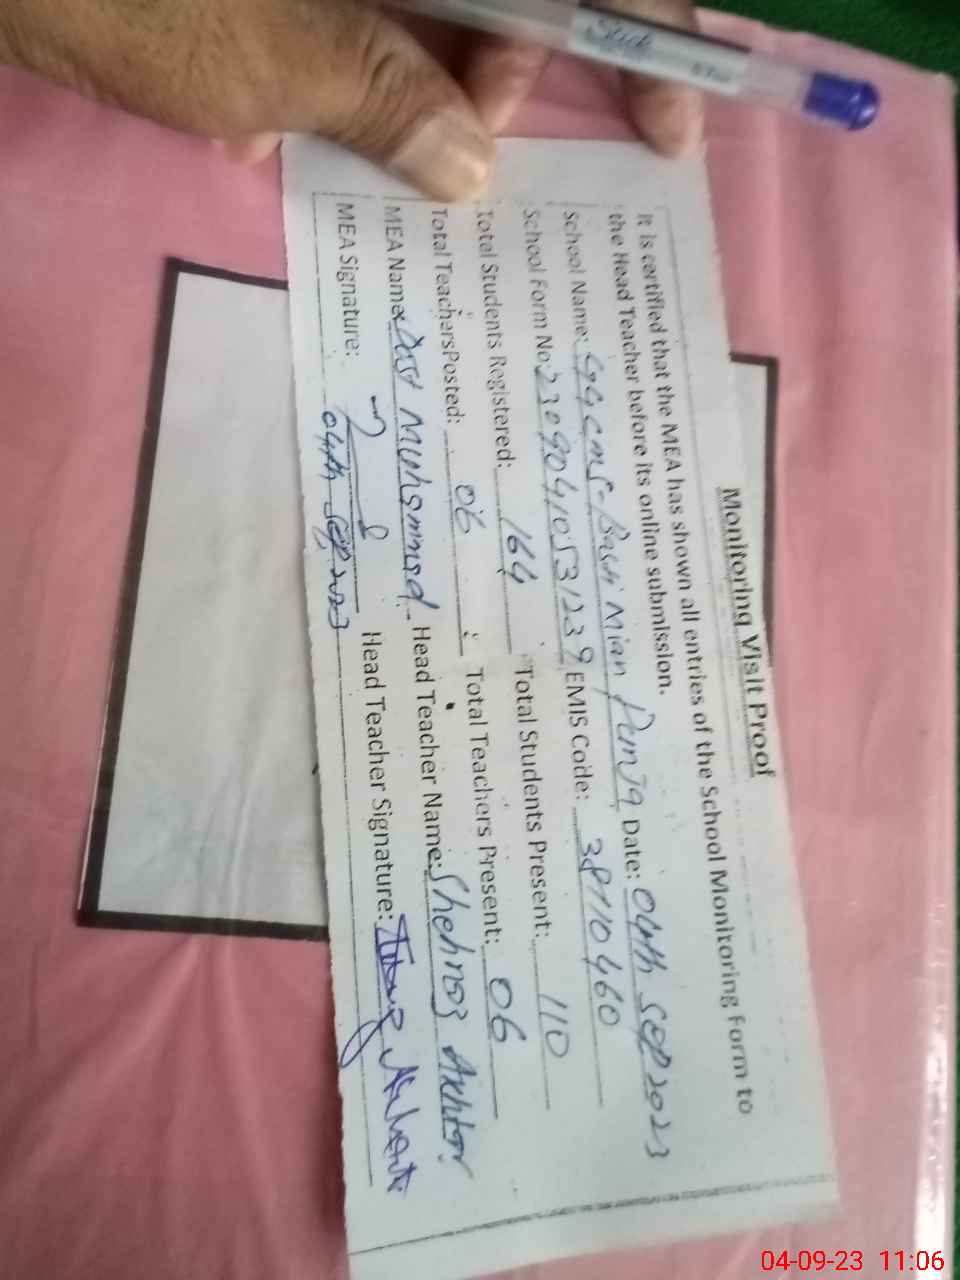 Monitoring Visit Proof
It is certified that the MEA has shown all entries of the School Monitoring Form to
the Head Teacher before its online submission.
School Name: Mian Date: 04th Sep 2023
School Form No: 23090410531239 EMIS Code: 38110460
Total Students Registered: 164 Total Students Present: 110
Total Teachers Posted: 06 Total Teachers Present: 06
MEA Name: Dost Muhammad Head Teacher Name: Shehnaz Akhtar
MEA Signature: Head Teacher Signature:
04th Sep 2023
04-09-23 11:06